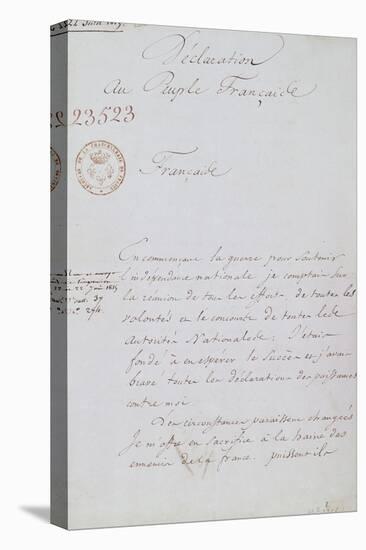 Déclaration
Au Peuple Française
23523
Française
En commençant la guerre pour soutenir
l'indépendance nationale je comptais sur
la réunion de tous les efforts, de toutes les
volontés et le concours de toutes les
autorités Nationales; J'étais
fondé à en espérer le Succès et j'avais
bravé toutes les déclarations des puissances
contre moi.
Des circonstances paraissent changées
Je m'offre en sacrifice à la haine des
ennemis de la france. puissent ils